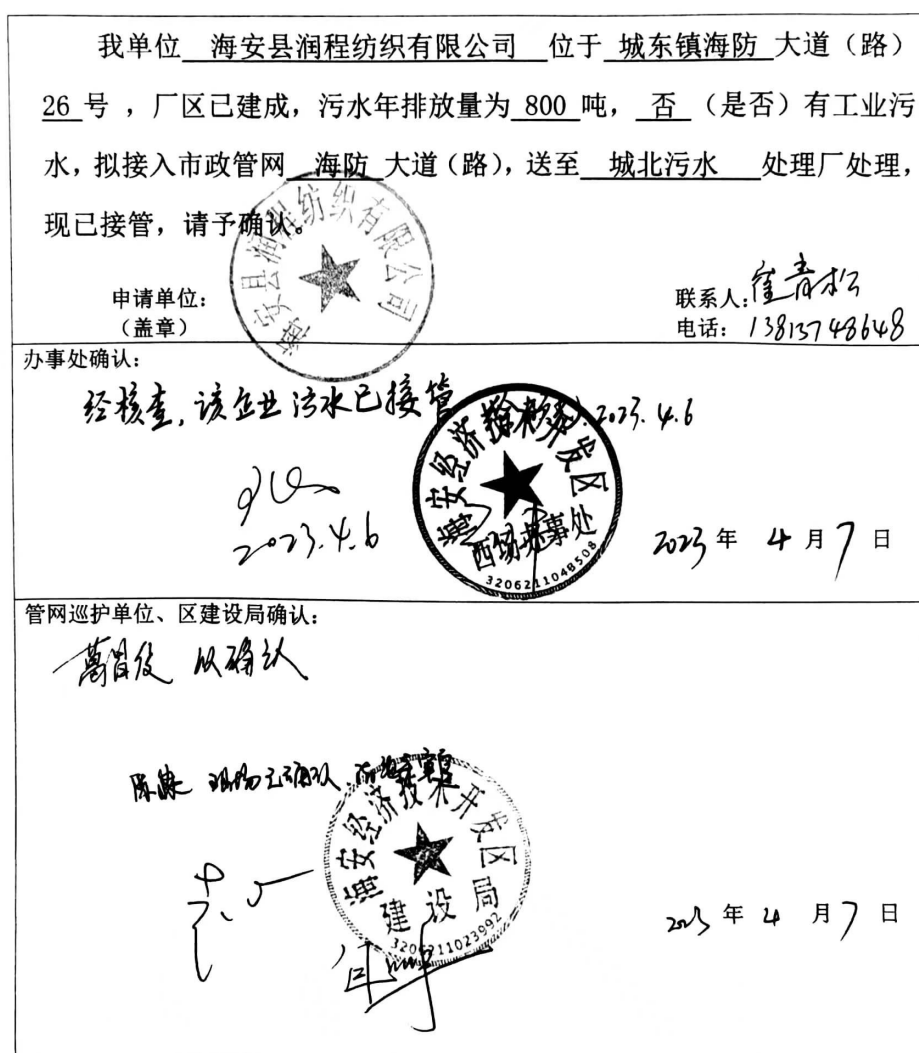 我单位 海安县润程纺织有限公司 位于 城东镇海防 大道（路）
26 号 ，厂区已建成，污水年排放量为 800 吨， 否 （是否）有工业污
水，拟接入市政管网 海防 大道（路），送至 城北污水 处理厂处理，
现已接管，请予确认。
海安县润程纺织有限公司
申请单位：
（盖章）
联系人：崔青松
电话：13815748648
办事处确认：
经核查，该企业污水已接管 2023.4.6
2023.4.6
海安经济技术开发区
西场办事处
3206211048508
2023 年 4 月 7 日
管网巡护单位、区建设局确认：
已确认
陈康 现场已确认
海安经济技术开发区
建设局
3206211023992
2023 年 4 月 7 日